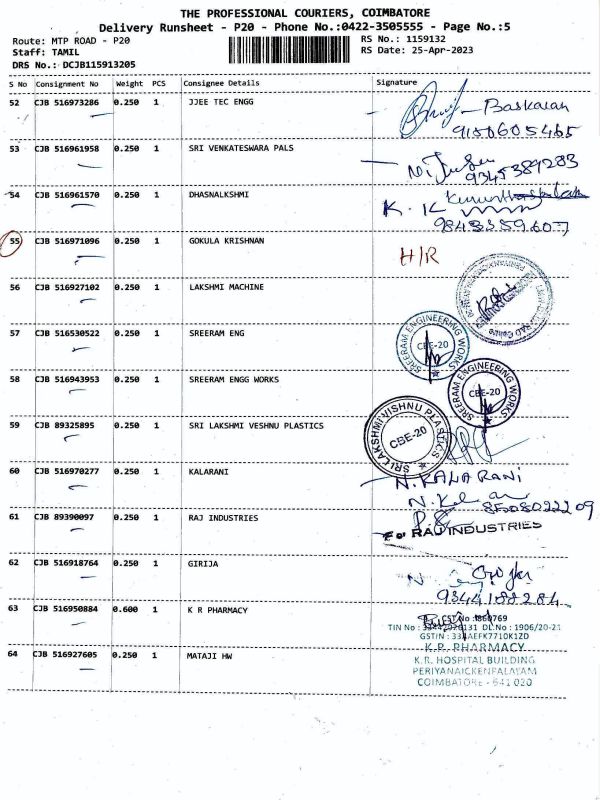 THE PROFESSIONAL COURIERS, COIMBATORE
Delivery Runsheet - P20 - Phone No.:0422-3505555 - Page No.:5
Route: MTP ROAD - P20
RS No.: 1159132
Staff: TAMIL
RS Date: 25-Apr-2023
DRS No.: DCJB115913205
S No Consignment No Weight PCS Consignee Details Signature
52 CJB 516973286 0.250 1 JJEE TEC ENGG Baskaran
9150605465
53 CJB 516961958 0.250 1 SRI VENKATESWARA PALS
9345389283
54 CJB 516961570 0.250 1 DHASNALKSHMI K. K
9843359607
55 CJB 516971096 0.250 1 GOKULA KRISHNAN H/R
56 CJB 516927102 0.250 1 LAKSHMI MACHINE
57 CJB 516530522 0.250 1 SREERAM ENG
SREERAM ENGINEERING WORKS
CBE-20
58 CJB 516943953 0.250 1 SREERAM ENGG WORKS
SREERAM ENGINEERING WORKS
CBE-20
59 CJB 89325895 0.250 1 SRI LAKSHMI VESHNU PLASTICS
SRI LAKSHMI VISHNU PLASTICS
CBE-20
60 CJB 516970277 0.250 1 KALARANI N. KALARANI
8508022209
61 CJB 89390097 0.250 1 RAJ INDUSTRIES
For RAJ INDUSTRIES
62 CJB 516918764 0.250 1 GIRIJA
9344188284
63 CJB 516950884 0.600 1 K R PHARMACY
TIN No : DL No : 1906/20-21
GSTIN : 33AAEFK7710K1ZD
K.R. PHARMACY
K.R. HOSPITAL BUILDING
PERIYANAICKENPALAYAM
COIMBATORE - 641 020
64 CJB 516927605 0.250 1 MATAJI HW